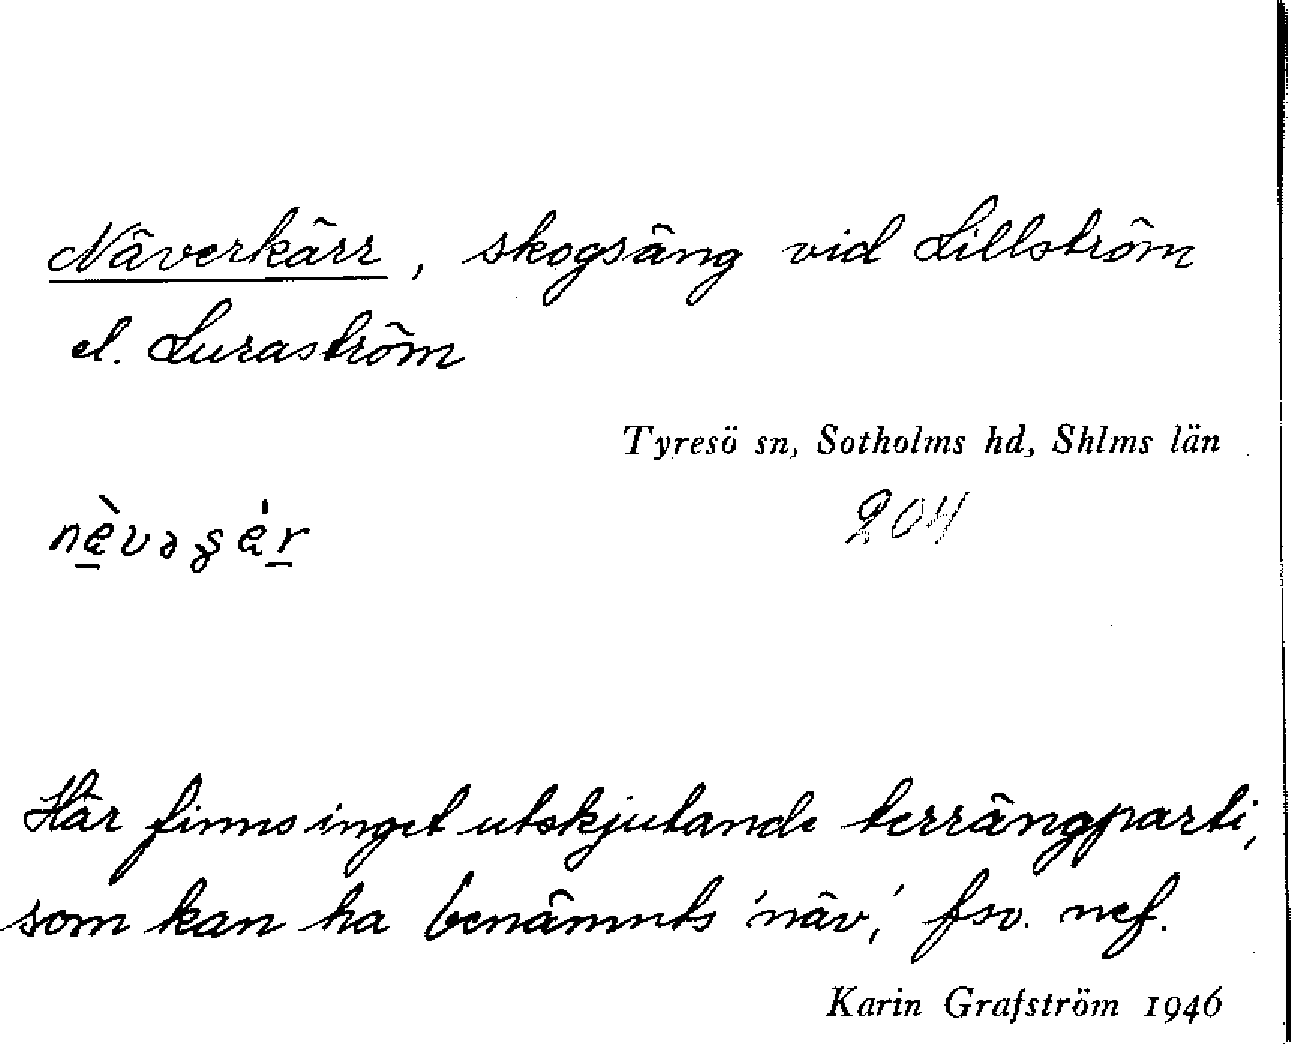 Näverkärr, skogsäng vid Lillström
el. Luraström
Tyresö sn, Sotholms hd, Shlms län
204
Här finns inget utskjutande terrängparti,
som kan ha benämnts 'näv,' fsv. nef.
Karin Grafström 1946